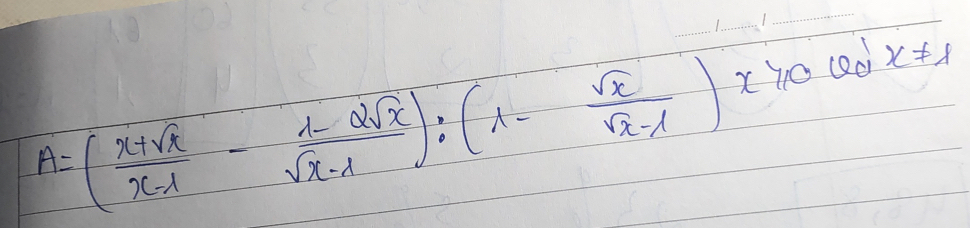 A = ( (x+√x)/(x-1) - (1-2√x)/(√x-1) ) : ( 1 - √x/(√x-1) ) x ≥ 0 và x ≠ 1